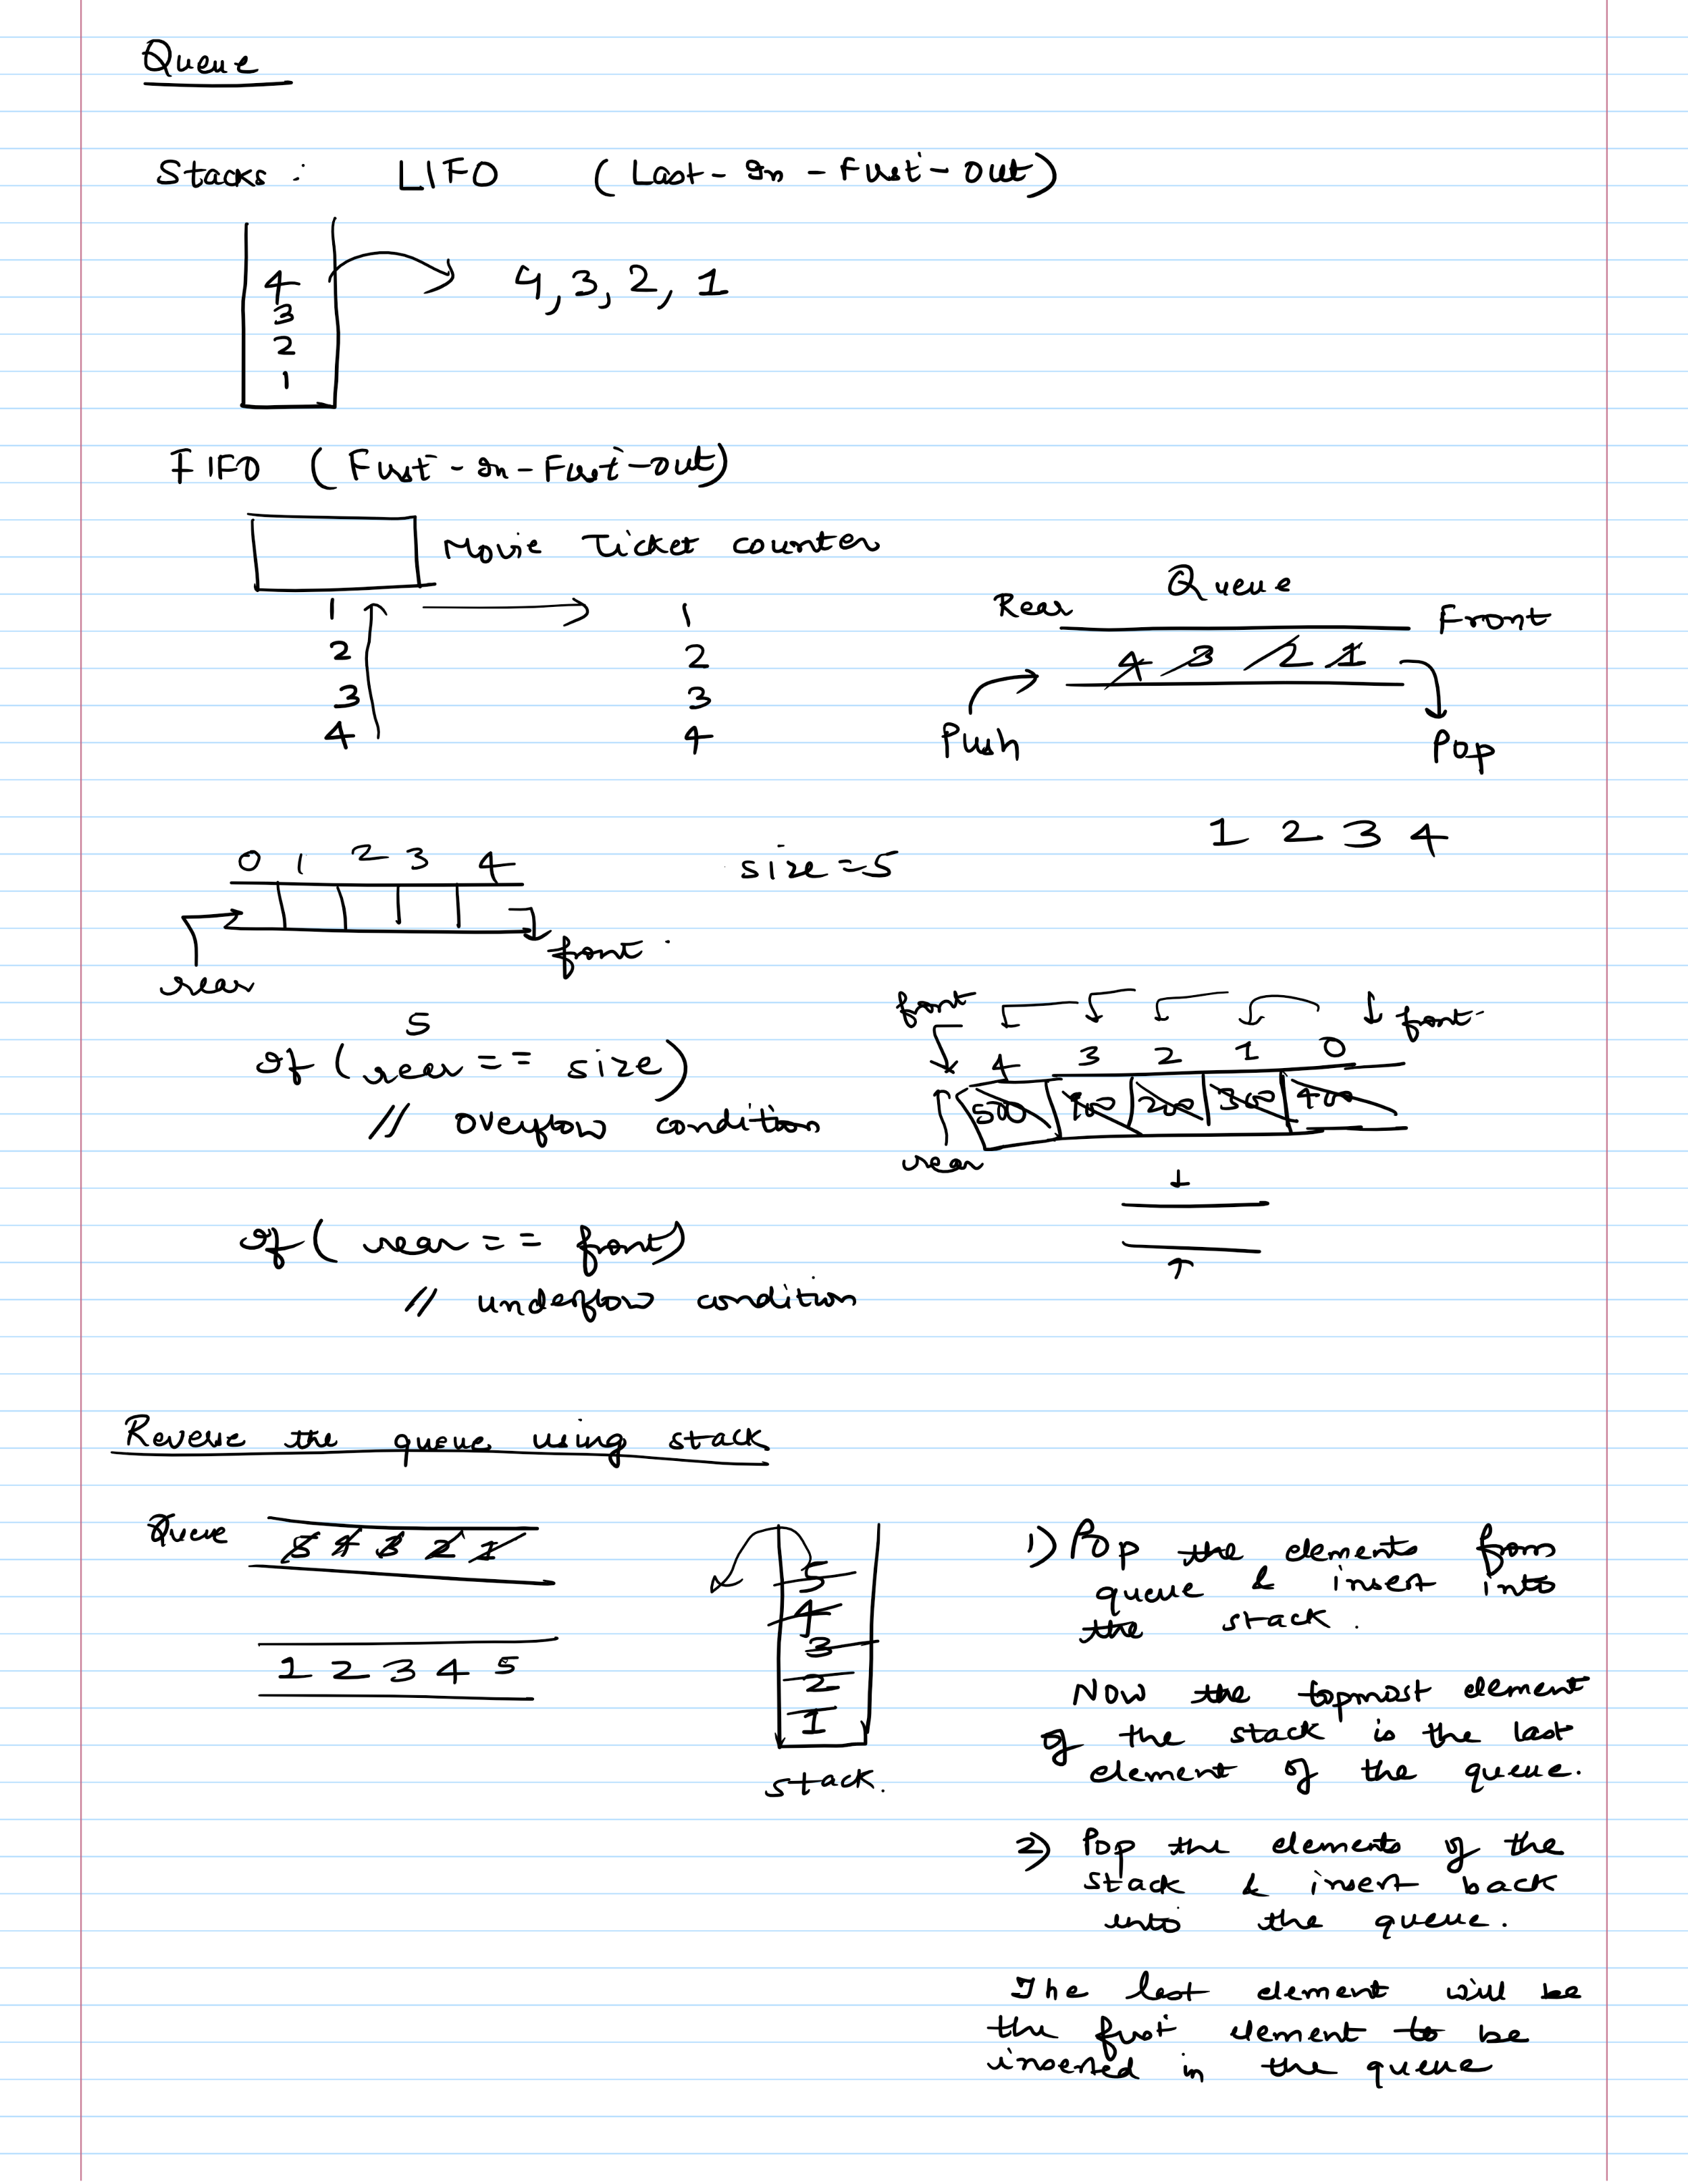 Queue
Stacks : LIFO (Last-In-First-Out)
4
3
2
1
4, 3, 2, 1
FIFO (First-In-First-Out)
Movie Ticket counter
1 1
2 2
3 3
4 4
Queue
Rear Front
4 3 2 1
Push Pop
1 2 3 4
0 1 2 3 4
size = 5
rear front
5
if (rear == size)
// overflow condition
if (rear == front)
// underflow condition
front front
4 3 2 1 0
500 100 200 300 400
rear
Reverse the queue using stack
Queue 5 4 3 2 1
1 2 3 4 5
5
4
3
2
1
stack.
1) Pop the elements from
queue & insert into
the stack.
Now the topmost element
of the stack is the last
element of the queue.
2) Pop the elements of the
stack & insert back
into the queue.
The last element will be
the first element to be
inserted in the queue